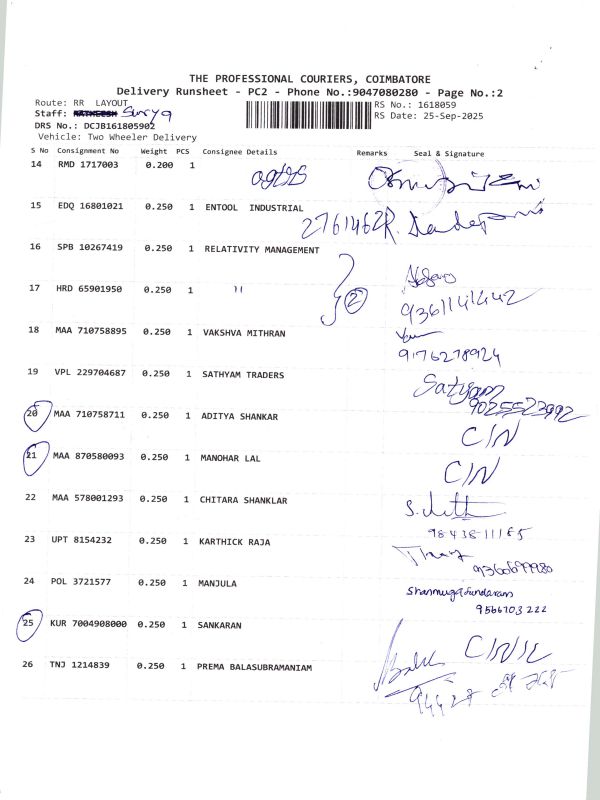 THE PROFESSIONAL COURIERS, COIMBATORE
Delivery Runsheet - PC2 - Phone No.:9047080280 - Page No.:2
Route: RR LAYOUT
Staff: Surya
DRS No.: DCJB161805902
Vehicle: Two Wheeler Delivery
RS No.: 1618059
RS Date: 25-Sep-2025
S No Consignment No Weight PCS Consignee Details Remarks Seal & Signature
14 RMD 1717003 0.200 1
15 EDQ 16801021 0.250 1 ENTOOL INDUSTRIAL
16 SPB 10267419 0.250 1 RELATIVITY MANAGEMENT
17 HRD 65901950 0.250 1 " 2
18 MAA 710758895 0.250 1 VAKSHVA MITHRAN
9176278924
19 VPL 229704687 0.250 1 SATHYAM TRADERS Satyam
9025523992
20 MAA 710758711 0.250 1 ADITYA SHANKAR C/N
21 MAA 870580093 0.250 1 MANOHAR LAL C/N
22 MAA 578001293 0.250 1 CHITARA SHANKLAR
98438-11165
23 UPT 8154232 0.250 1 KARTHICK RAJA
24 POL 3721577 0.250 1 MANJULA Shanmuga Sundaram
9566703222
25 KUR 7004908000 0.250 1 SANKARAN
26 TNJ 1214839 0.250 1 PREMA BALASUBRAMANIAM